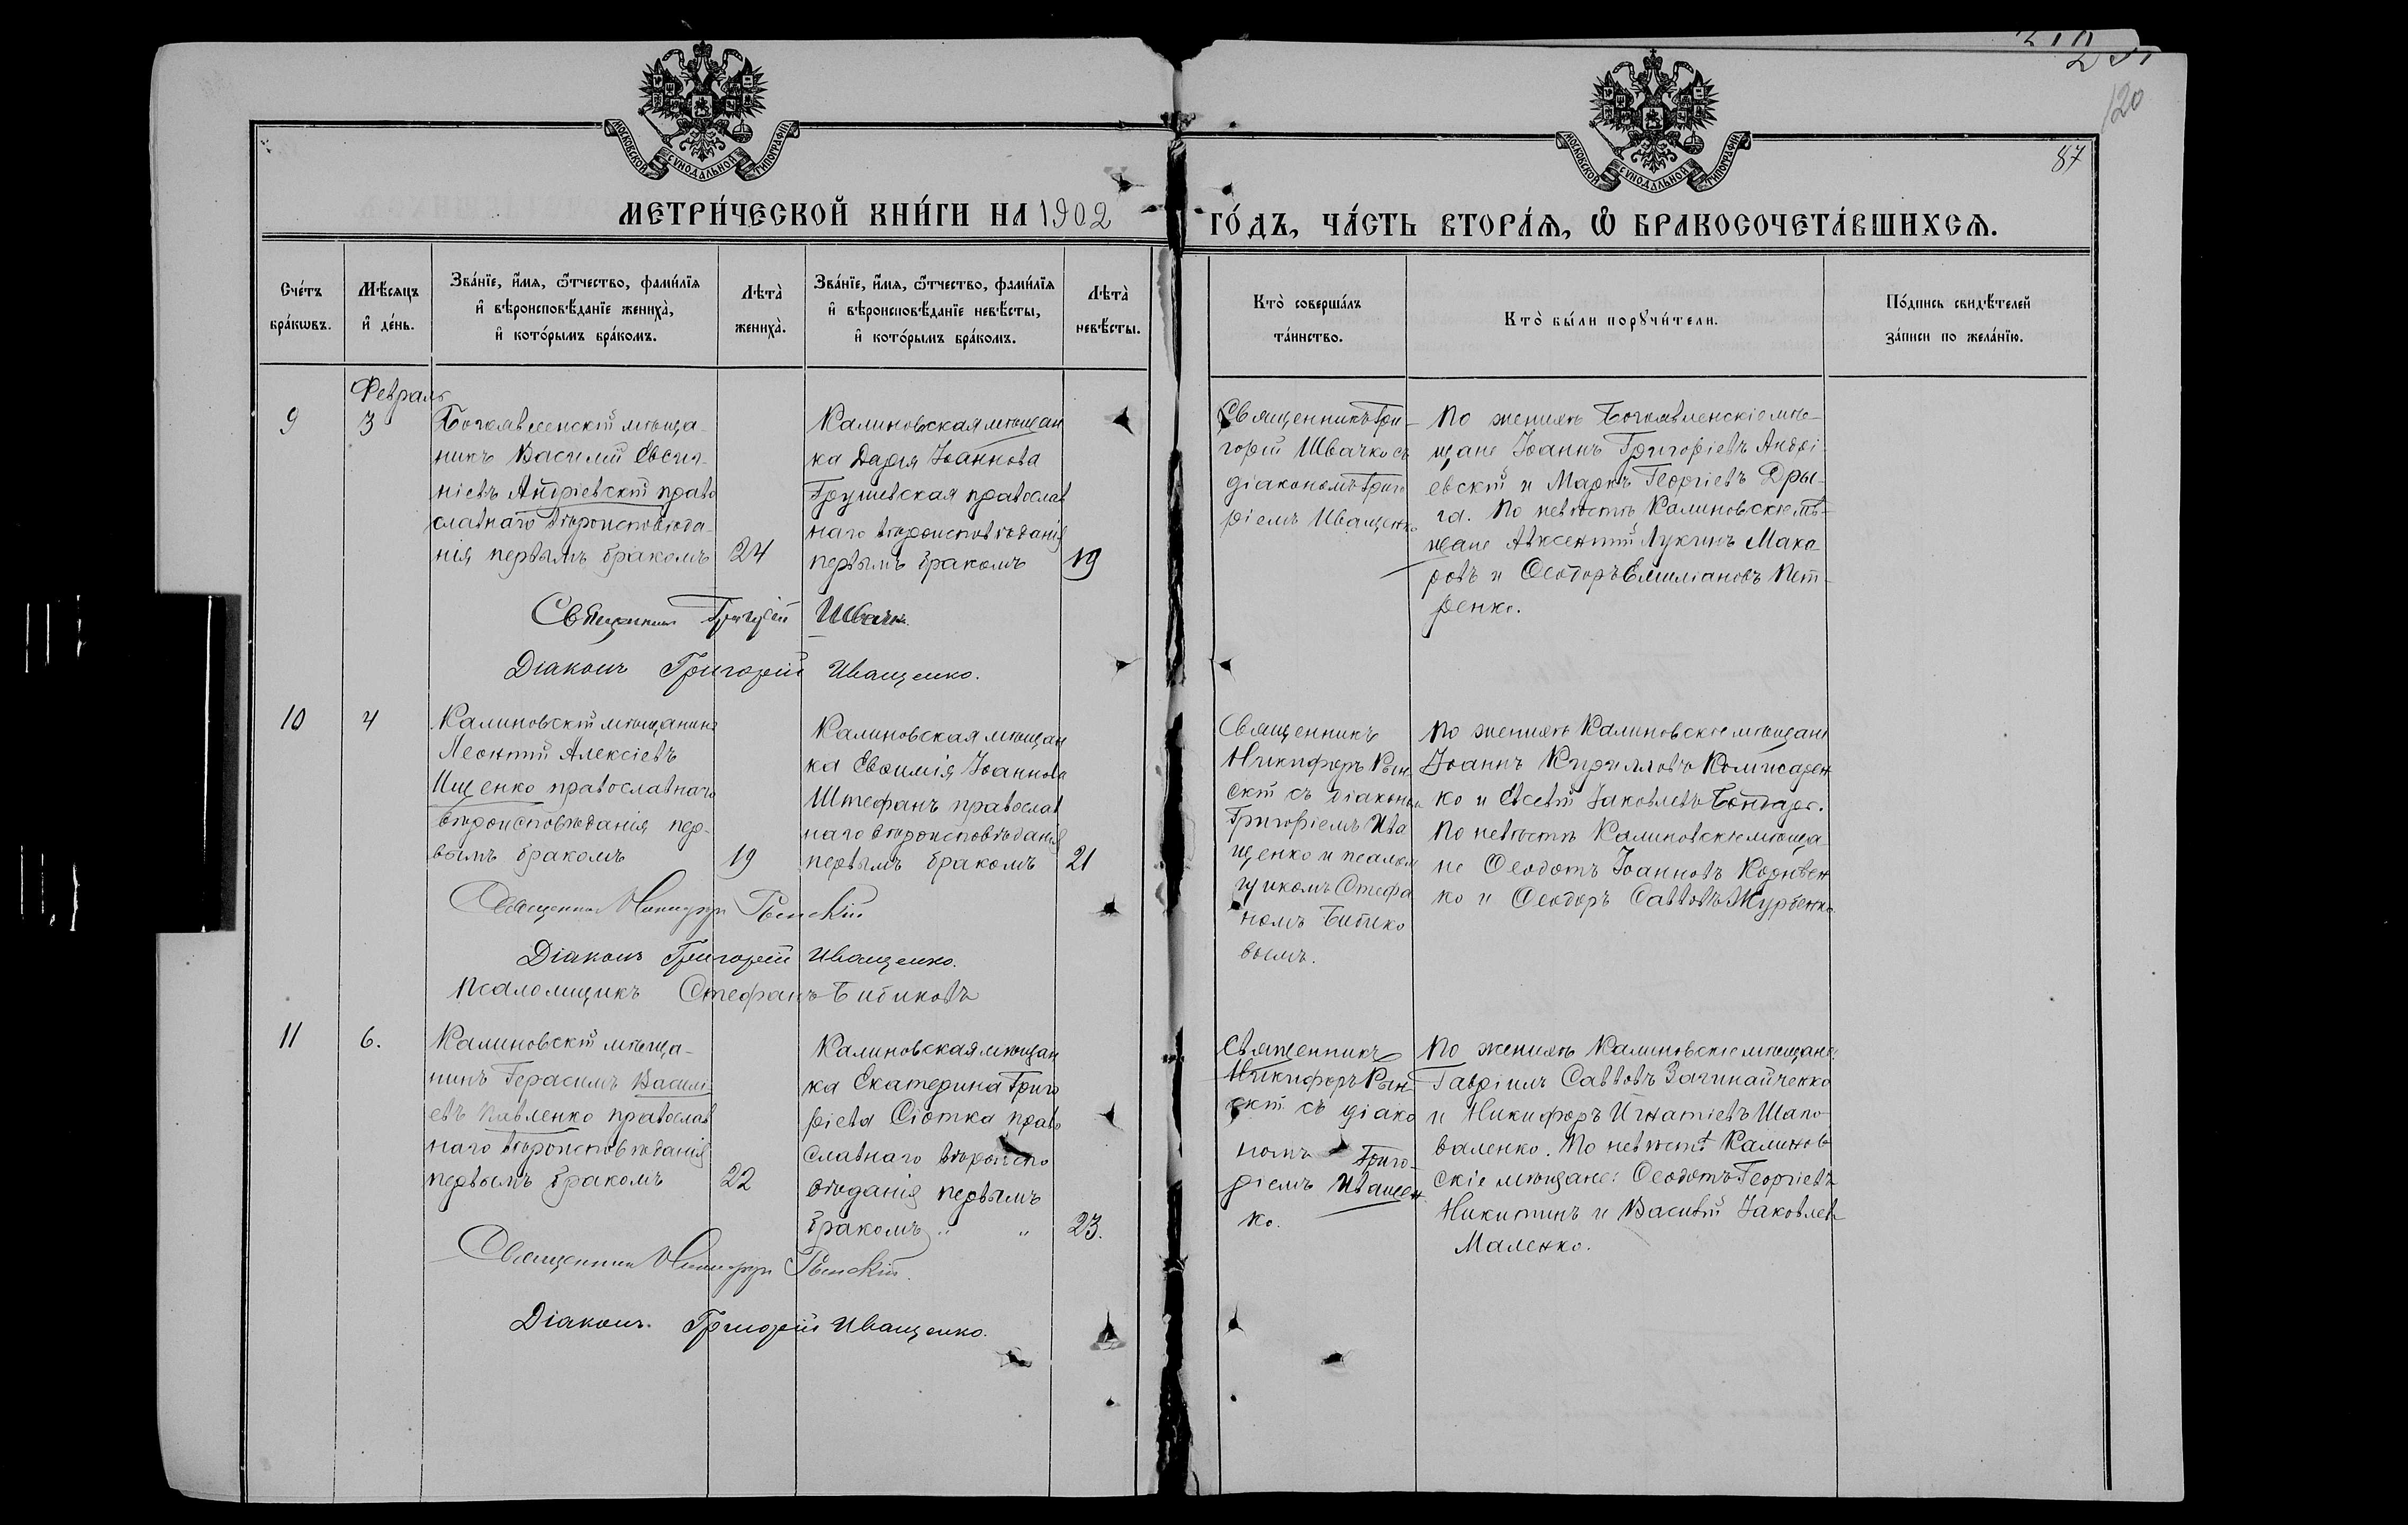 120
87
МОСКОВСКОЙ СУНОДАЛЬНОЙ ТИПОГРАФІИ.
МОСКОВСКОЙ СУНОДАЛЬНОЙ ТИПОГРАФІИ.
МЕТРИ́ЧЕСКОЙ КНИ́ГИ НА 1902
ГО́ДЪ, ЧА́СТЬ ВТОРА́Ѧ, Ѽ БРАКОСОЧЕТА́ВШИХСѦ.
Сче́тъ
бра́кѡвъ.
Мѣ́сяцъ
и҆ де́нь.
Зва́нїе, и҆́мя, ѻ҆́тчество, фами́лїя
и҆ вѣроисповѣ́данїе жениха̀,
и҆ кото́рымъ бра́комъ.
Лѣта̀
жениха̀.
Зва́нїе, и҆́мя, ѻ҆́тчество, фами́лїя
и҆ вѣроисповѣ́данїе невѣ́сты,
и҆ кото́рымъ бра́комъ.
Лѣта̀
невѣ́сты.
Кто̀ соверша́лъ
та́инство.
Кто̀ бы́ли порꙋчи́тели.
По́дпись свидѣ́телей
за́писи по жела́нїю.
Февраль
9
3
Богоявленскій мѣща-
никъ Василій Евсиг-
ніевъ Андріевскій право
славнаго вѣроисповѣда-
нія первымъ бракомъ
24
Калиновская мѣщан
ка Дарія Іоаннова
Грушевская православ
наго вѣроисповѣданія
первымъ бракомъ
19
Священникъ Гри-
горій Швачко съ
діакономъ Григо
ріемъ Иващенко
По женихѣ Богоявленскіе мѣ-
щане Іоаннъ Григоріевъ Андрі-
евскій и Маркъ Георгіевъ Дры-
га. По невѣстѣ Калиновскіе мѣ-
щане Авксентій Лукинъ Мака
ровъ и Ѳеодоръ Емиліановъ Пет-
ренко.
Священникъ Григорій Швачко
Діаконъ Григорій Иващенко.
10
4
Калиновскій мѣщанинъ
Леонтій Алексіевъ
Ищенко православнаго
вѣроисповѣданія пер-
вымъ бракомъ
19
Калиновская мѣщан
ка Евѳимія Іоаннова
Штефанъ православ
наго вѣроисповѣданія
первымъ бракомъ
21
Священникъ
Никифоръ Рын
скій съ діакономъ
Григоріемъ Ива
щенко и псалом
щикомъ Стефа
номъ Бибико
вымъ.
По женихѣ Калиновскіе мѣщане
Іоаннъ Кирилловъ Комисарен
ко и Евсевій Іаковлевъ Бондарь.
По невѣстѣ Калиновскіе мѣща
не Ѳеодотъ Іоанновъ Корнвен
ко и Ѳеодоръ Савовъ Журбенко.
Священникъ Никифоръ Рынскій
Діаконъ Григорій Иващенко.
Псаломщикъ Стефанъ Бибиковъ
11
6.
Калиновскій мѣща-
нинъ Герасимъ Васили
евъ Павленко православ
наго вѣроисповѣданія
первымъ бракомъ
22
Калиновская мѣщан
ка Екатерина Григо
ріева Сіотка право
славнаго вѣроиспо
вѣданія первымъ
бракомъ " "
23.
Священникъ
Никифоръ Рын
скій съ діако
номъ Григо-
ріемъ Иващен
ко.
По женихѣ Калиновскіе мѣщане
Гавріилъ Саввовъ Загинайченко
и Никифоръ Игнатіевъ Шапо
валенко. По невѣстѣ Калинов
скіе мѣщане: Ѳеодотъ Георгіевъ
Никитинъ и Василій Іаковлев
Маленко.
Священникъ Никифоръ Рынскій.
Діаконъ Григорій Иващенко.